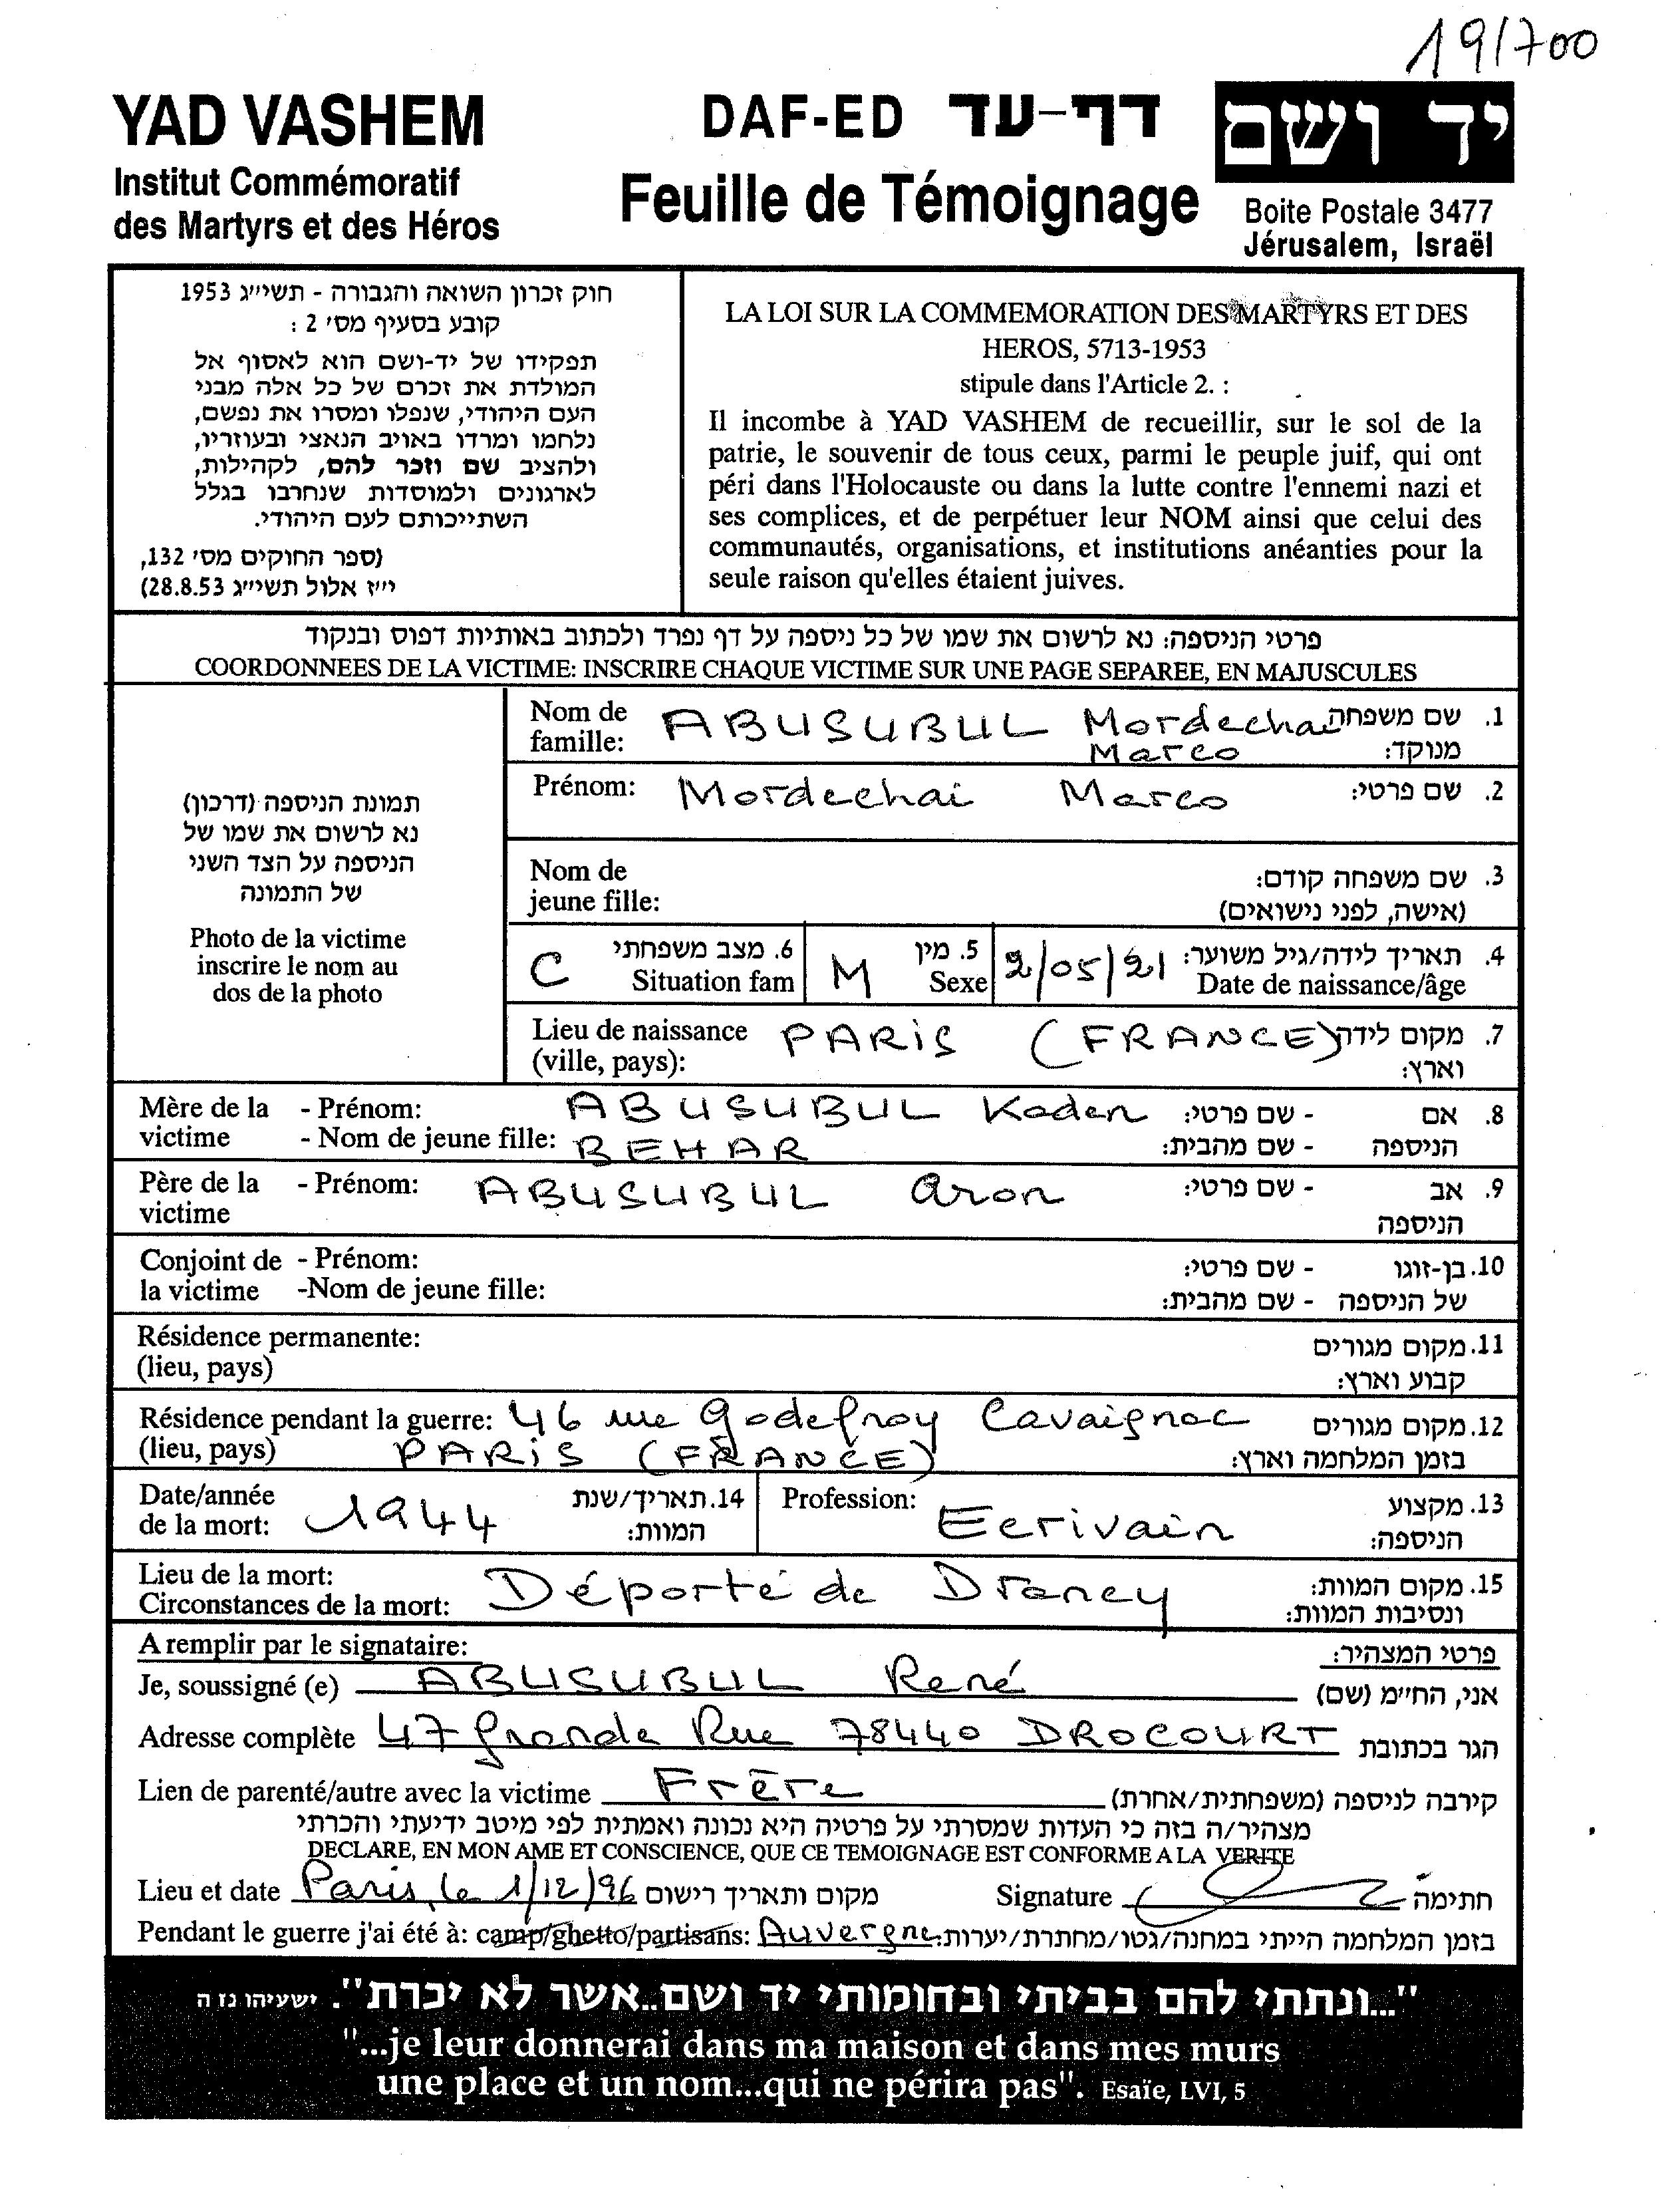 19/700
YAD VASHEM
Institut Commémoratif
des Martyrs et des Héros
DAF-ED דף-עד
Feuille de Témoignage
יד ושם
Boite Postale 3477
Jérusalem, Israël
חוק זכרון השואה והגבורה - תשי״ג 1953
קובע בסעיף מס׳ 2 :
תפקידו של יד-ושם הוא לאסוף אל
המולדת את זכרם של כל אלה מבני
העם היהודי, שנפלו ומסרו את נפשם,
נלחמו ומרדו באויב הנאצי ובעוזריו,
ולהציב שם וזכר להם, לקהילות,
לארגונים ולמוסדות שנחרבו בגלל
השתייכותם לעם היהודי.
(ספר החוקים מס׳ 132,
י״ז אלול תשי״ג 28.8.53)
LA LOI SUR LA COMMEMORATION DES MARTYRS ET DES
HEROS, 5713-1953
stipule dans l'Article 2. :
Il incombe à YAD VASHEM de recueillir, sur le sol de la
patrie, le souvenir de tous ceux, parmi le peuple juif, qui ont
péri dans l'Holocauste ou dans la lutte contre l'ennemi nazi et
ses complices, et de perpétuer leur NOM ainsi que celui des
communautés, organisations, et institutions anéanties pour la
seule raison qu'elles étaient juives.
פרטי הניספה: נא לרשום את שמו של כל ניספה על דף נפרד ולכתוב באותיות דפוס ובנקוד
COORDONNEES DE LA VICTIME: INSCRIRE CHAQUE VICTIME SUR UNE PAGE SEPAREE, EN MAJUSCULES
תמונת הניספה (דרכון)
נא לרשום את שמו של
הניספה על הצד השני
של התמונה
Photo de la victime
inscrire le nom au
dos de la photo
Nom de ABUSUBUL Mordechai 1. שם משפחה
famille: Marco מנוקד:
Prénom: Mordechai Marco 2. שם פרטי:
Nom de 3. שם משפחה קודם:
jeune fille: (אישה, לפני נישואים)
C 6. מצב משפחתי M 5. מין 2/05/21 4. תאריך לידה/גיל משוער:
Situation fam Sexe Date de naissance/âge
Lieu de naissance PARIS (FRANCE) 7. מקום לידה
(ville, pays): וארץ:
Mère de la - Prénom: ABUSUBUL Kaden - שם פרטי: 8. אם
victime - Nom de jeune fille: BEHAR - שם מהבית: הניספה
Père de la - Prénom: ABUSUBUL Aron - שם פרטי: 9. אב
victime הניספה
Conjoint de - Prénom: - שם פרטי: 10. בן-זוגו
la victime -Nom de jeune fille: - שם מהבית: של הניספה
Résidence permanente: 11. מקום מגורים
(lieu, pays) קבוע וארץ:
Résidence pendant la guerre: 46 rue Godefroy Cavaignac 12. מקום מגורים
(lieu, pays) PARIS (FRANCE) בזמן המלחמה וארץ:
Date/année 1944 14. תאריך/שנת Profession: Ecrivain 13. מקצוע
de la mort: המוות: הניספה:
Lieu de la mort: Déporté de Drancy 15. מקום המוות:
Circonstances de la mort: ונסיבות המוות:
A remplir par le signataire: פרטי המצהיר:
Je, soussigné (e) ABUSUBUL René אני, החי״מ (שם)
Adresse complète 47 Grande Rue 78440 DROCOURT הגר בכתובת
Lien de parenté/autre avec la victime Frère קירבה לניספה (משפחתית/אחרת)
מצהיר/ה בזה כי העדות שמסרתי על פרטיה היא נכונה ואמתית לפי מיטב ידיעתי והכרתי
DECLARE, EN MON AME ET CONSCIENCE, QUE CE TEMOIGNAGE EST CONFORME A LA VERITE
Lieu et date Paris, le 1/12/96 מקום ותאריך רישום Signature חתימה
Pendant le guerre j'ai été à: camp/ghetto/partisans: Auvergne בזמן המלחמה הייתי במחנה/גטו/מחתרת/יערות:
"...ונתתי להם בביתי ובחומותי יד ושם..אשר לא יכרת". ישעיהו נו ה
"...je leur donnerai dans ma maison et dans mes murs
une place et un nom...qui ne périra pas". Esaïe, LVI, 5